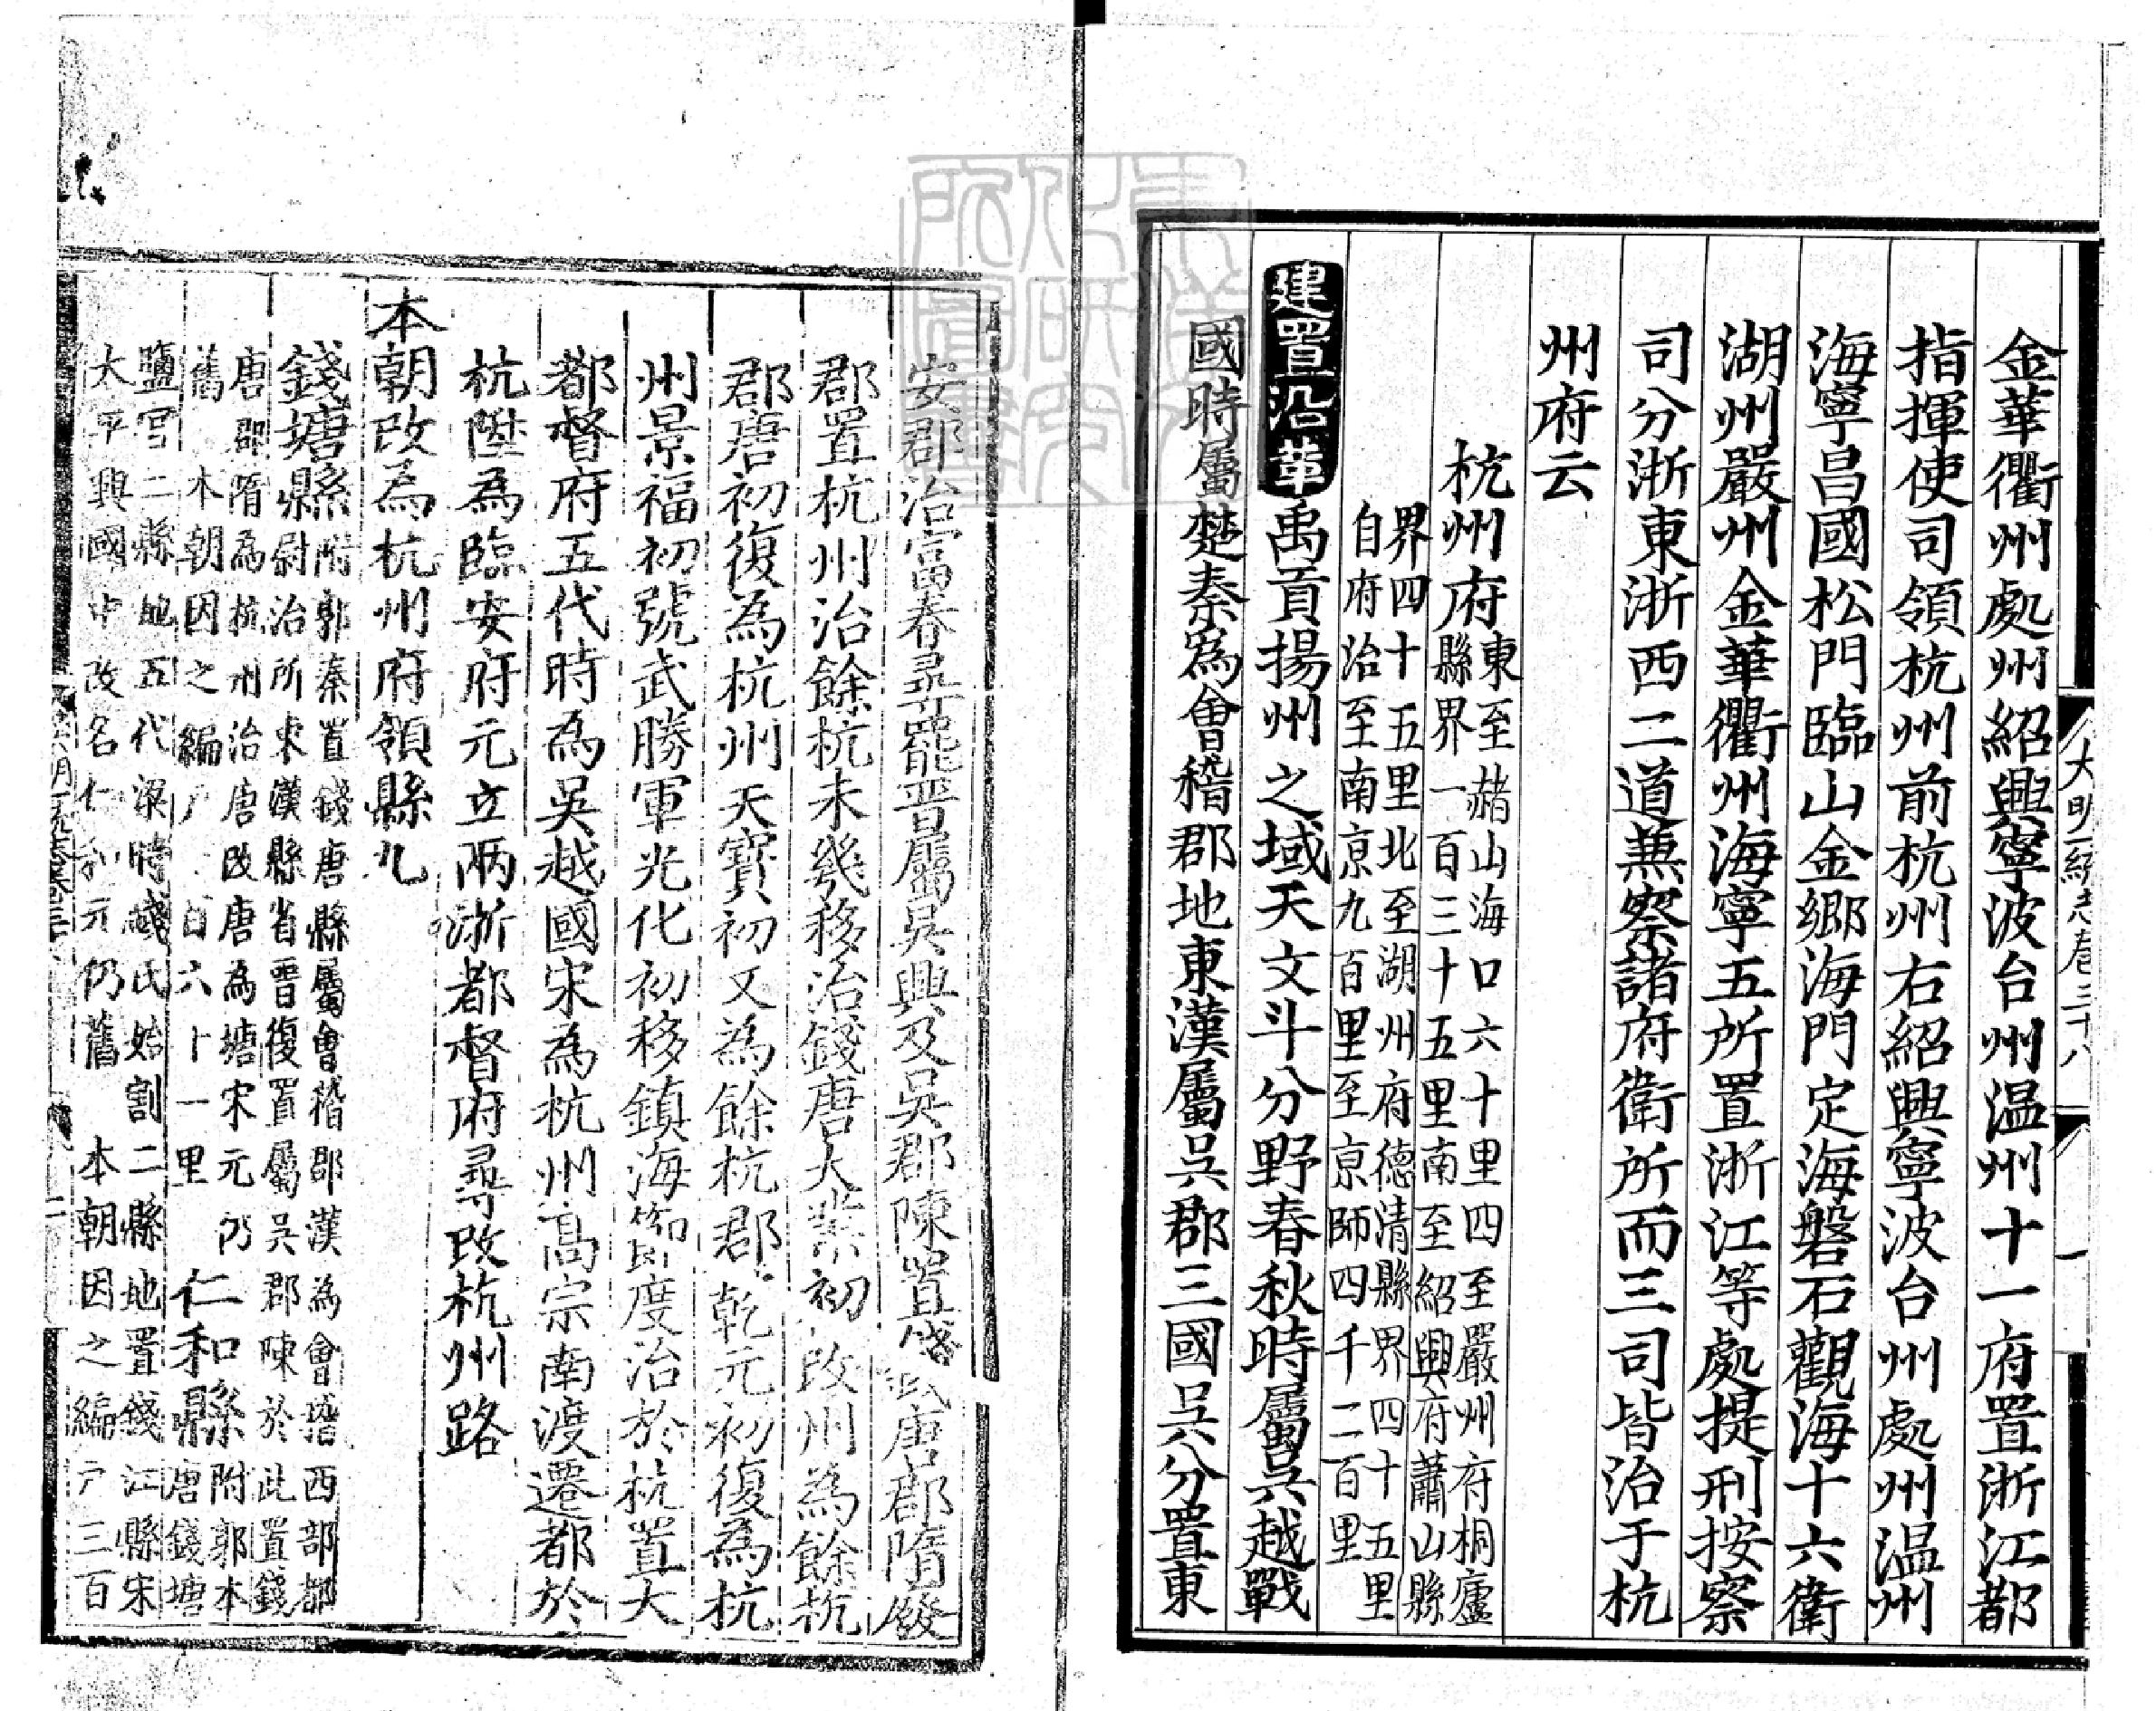 金華衢州處州紹興寧波台州温州十一府置浙江都
指揮使司領杭州前杭州右紹興寧波台州處州温州
海寧昌國松門臨山金鄉海門定海磐石觀海十六衛
湖州嚴州金華衢州海寧五所置浙江等處提刑按察
司分浙東浙西二道兼察諸府衛所而三司皆治于杭
州府云
杭州府
東至赭山海口六十里四至嚴州府桐廬
縣界一百三十五里南至紹興府蕭山縣
界四十五里北至湖州府德清縣界四十五里
自府治至南京九百里至京師四千二百里
建置沿革禹貢揚州之域天文斗分野春秋時屬吳越戰
國時屬楚秦爲會稽郡地東漢屬吳郡三國吳分置東
安郡治富春尋罷晋屬吳興及吳郡陳置錢唐郡隋廢
郡置杭州治餘杭未幾移治錢唐大業初改州為餘杭
郡唐初復為杭州天寶初又為餘杭郡乾元初復為杭
州景福初號武勝軍光化初移鎮海節度治於杭置大
都督府五代時為吳越國宋為杭州高宗南渡遷都於
杭陞為臨安府元立兩浙都督府尋改杭州路
本朝改為杭州府領縣九
錢塘縣
附郭秦置錢唐縣屬會稽郡漢為會稽西部都
尉治所東漢縣省晋復置屬吳郡陳於此置錢
唐郡隋為杭州治唐改唐為塘宋元仍
舊本朝因之編户百六十一里
仁和縣
附郭本
唐錢塘
鹽官二縣地五代梁時錢氏始割二縣地置錢江縣宋
太平興國中改名仁和元仍舊本朝因之編户三百
大明一統志卷三十八
一